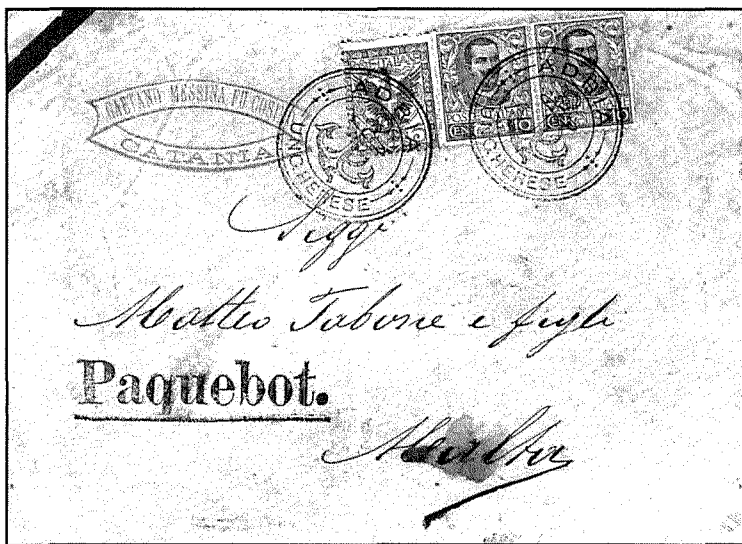 GAETANO MESSINA FU COSI
CATANIA
ADRIA
UNGHERESE
ADRIA
UNGHERESE
POS
CENT 10
Sigg.
Matteo Tabone e figli
Paquebot.
Malta